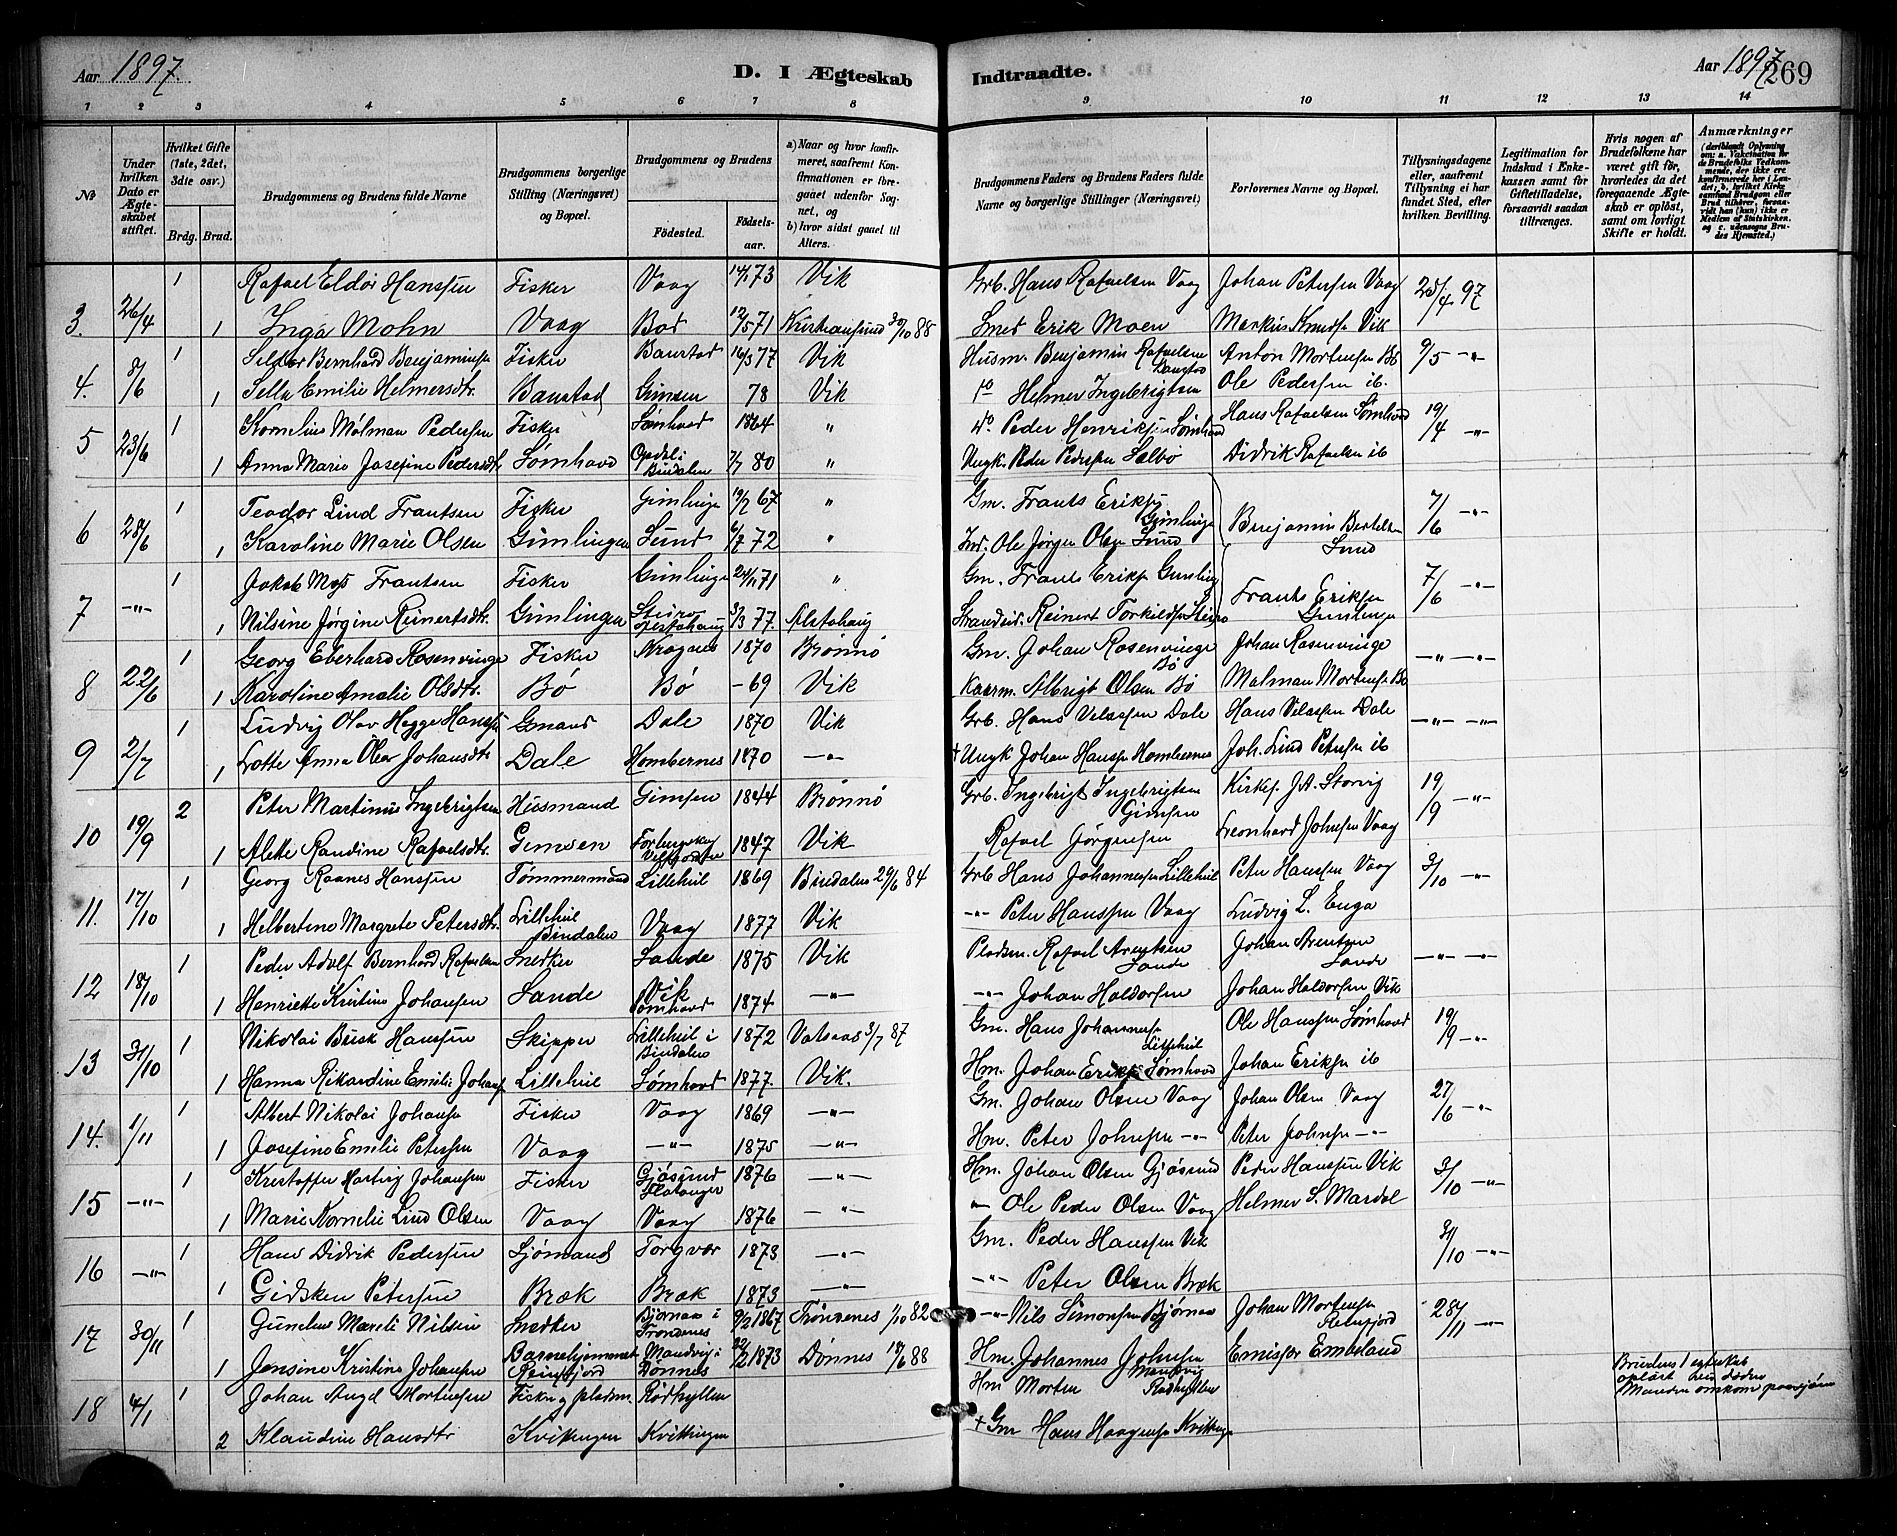 Aar 1897. D. I Ægteskab Indtraadte. Aar 1897 269
1 2 3 4 5 6 7 8 9 10 11 12 13 14
№
Under hvilken Dato er Ægteskabet stiftet.
Hvilket Gifte (1ste, 2det, 3die osv.)
Brdg. Brud.
Brudgommens og Brudens fulde Navne
Brudgommens borgerlige Stilling (Næringsvei) og Bopæl.
Brudgommens og Brudens
Fødested. Fødselsaar.
a) Naar og hvor konfirmeret, saafremt Konfirmationen er foregaaet udenfor Sognet, og
b) hvor sidst gaaet til Alters.
Brudgommens Faders og Brudens Faders fulde Navne og borgerlige Stillinger (Næringsvei)
Forlovernes Navne og Bopæl.
Tillysningsdagene eller, saafremt Tillysning ei har fundet Sted, efter hvilken Bevilling.
Legitimation for Indskud i Enkekassen samt for Giftetilladelse, forsaavidt saadan tiltrænges.
Hvis nogen af Brudefolkene har været gift før, hvorledes da det foregaaende Ægteskab er opløst, samt om lovligt Skifte er holdt.
Anmærkninger
(deriblandt Oplysning om: a. Vakcination for de Brudefolks Vedkommende, der ikke ere konfirmerede her i Landet; b. hvilket Kirkesamfund Brudgom eller Brud tilhører, forsaavidt han (hun) ikke er Medlem af Statskirken. og c. udensogns Brudes Hjemsted.)
1 Rafael Eldor Hanssen Fisker Vaag 14/1 73 Vik Grb. Hans Rafaelsen Vaag Johan Petersen Vaag 25/4 97
3. 26/4 1 Inga Mohn Vaag Bod 12/5 71 Kristiansund 30/10 88 Smed Erik Moen Markus Knudsen Vik
1 Bernhard Benjaminsen Fisker Baustad 16/3 77 Vik Husm. Benjamin Rafaelsen Anton Mortensen Bø 9/5 -"-
4. 8/6 1 Sella Emilie Helmersdtr. Baustad Gimsen 78 Vik do Helmer Ingebrigtsen Ole Pedersen ib.
1 Kornelius Molman Pedersen Fisker Sømhovd 1864 " do. Peder Henriksen Sømhovd Hans Rafaelsen Sømhovd 19/4 -"-
5 23/6 1 Anna Marie Josefine Pedersdtr. Sømhovd Opdal i Bindalen 7/7 80 " Ungk. Peder Pedersen Selbø Didrik Rafaelsen ib
1 Teodor Lind Frantsen Fisker Gimlinge 19/7 67 " Gm. Frants Eriksen Gimlinge Benjamin Bertelsen Lund 7/6 -"-
6 28/6 1 Karoline Marie Olsen Gimlingen Lund 6/7 72 " Ind. Ole Jørgen Olsen Lund
1 Jakob Frantsen Fisker Gimlinge 24/11 71 " Gm. Frants Eriksen Gimling Frants Eriksen Gimlinge 7/6 -"-
7 -"- 1 Nilsine Jørgine Reinertsdtr. Gimlingen Alstahaug 3/3 77. Alstahaug Strandsid. Reinert Torkildsen
1 Georg Eberhard Rosenvinge Fisker 1870 Brønnø Gm. Johan Rosenvinge Bø Johan Rosenvinge -"- -"-
8 22/6 1 Karoline Amalie Olsdtr. Bø Bø -69 Vik Kaarm. Albrigt Olsen Bø Molman Mortensen Bø
1 Ludvig Olav Hegge Hanssen Gmand Dale 1870 Vik Grb. Hans Velassen Dale Hans Velassen Dale -"- -"-
9 2/7 1 Lotte Anna Olea Johansdtr. Dale Hombernes 1870 -"- † Ungk Johan Hanssen Hombernes Joh. Lind Petersen ib
2 Peter Martinus Ingebrigtsen Husmand Gimsen 1844 Brønnø Grb. Ingebrigt Ingebrigtsen Gimsen Kirkes. J.A. Storvig 19/9 -"-
10 19/9 1 Alette Randine Rafaelsdtr. Gimsen 1847 Vik Rafael Jørgensen Leonhard Johnsen Vaag
1 Georg Raanes Hanssen Tømmermand Lillehiil 1869 Bindalen 29/6 84 Grb Hans Johannessen Lillehiil Peter Hanssen Vaag 3/10 -"-
11. 17/10 1 Helbertine Margrete Petersdtr. Lillehiil Bindalen Vaag 1877 Vik -"- Peter Hanssen Vaag Ludvig L. Enga
1 Peder Adolf Bernhard Rafaelsen Snedker Sande 1875 Vik Pladsm. Rafael Arentsen Sande Johan Arentsen Sande -"- -"-
12 18/10 1 Henriette Kristine Johansen Sande Vik Sømhovd 1874 -"- -"- Johan Haldorsen Johan Haldorsen Vik
1 Nikolai Brisk Hanssen Skipper Lillehiil i Bindalen 1872 Vatsaas 3/7 87 Gm. Hans Johannessen Lillehiil Ole Hanssen Sømhovd 19/9 -"-
13 31/10 1 Hanna Rikardine Emilie Johansen Lillehiil Sømhovd 1877. Vik. Hm. Johan Eriksen Sømhovd Johan Eriksen ib
1 Albert Nikolai Johansen Fisker Vaag 1869 -"- Gm. Johan Olsen Vaag Johan Olsen Vaag 27/6 -"-
14. 1/11 1 Josefine Emilie Petersen Vaag -"- 1875 -"- Hm. Peter Johnsen -"- Peter Johnsen -"-
1 Kristoffer Hartvig Johansen Fisker Gjøsund Flatanger 1876 -"- Hm. Johan Olsen Gjøssund Peder Hanssen Vik 3/10 -"-
15 -"- 1 Marie Kornelie Lind Olsen Vaag Vaag 1876 -"- -"- Ole Peder Olsen Vaag Helmer S. Mardal
1 Hans Didrik Pedersen Sjømand Torgvær 1873 -"- Gm. Peder Hanssen Vik 31/10 -"-
16 -"- 1 Gidsken Petersen Bræk Bræk 1873 -"- -"- Peter Olsen Bræk
1 Gunelius Mareli Nilsen Snedker Bjørnaa i Trondenes 9/2 1867 Trondenes 1/10 82 -"- Nils Simonsen Bjørnaa Johan Mortensen 28/11 -"-
17 30/11 1 Jensine Kristine Johansen Barnehjemmet Mandvig i Dønnes 22/2 1873 Dønnes 18/6 88 Hm. Johannes Johnsen Mandvig Emissær Embsland
1 Johan Augd Mortensen Fisker og pladsm. Rødhyllen Hm Morten Rødhyllen Brudens 1 egteskab opløst ved døden Manden omkom paa sjøen
18 4/1 2 Klaudine Hansdtr Kvittingen Kvittingen † Gm Hans Haagensen Kvittinge